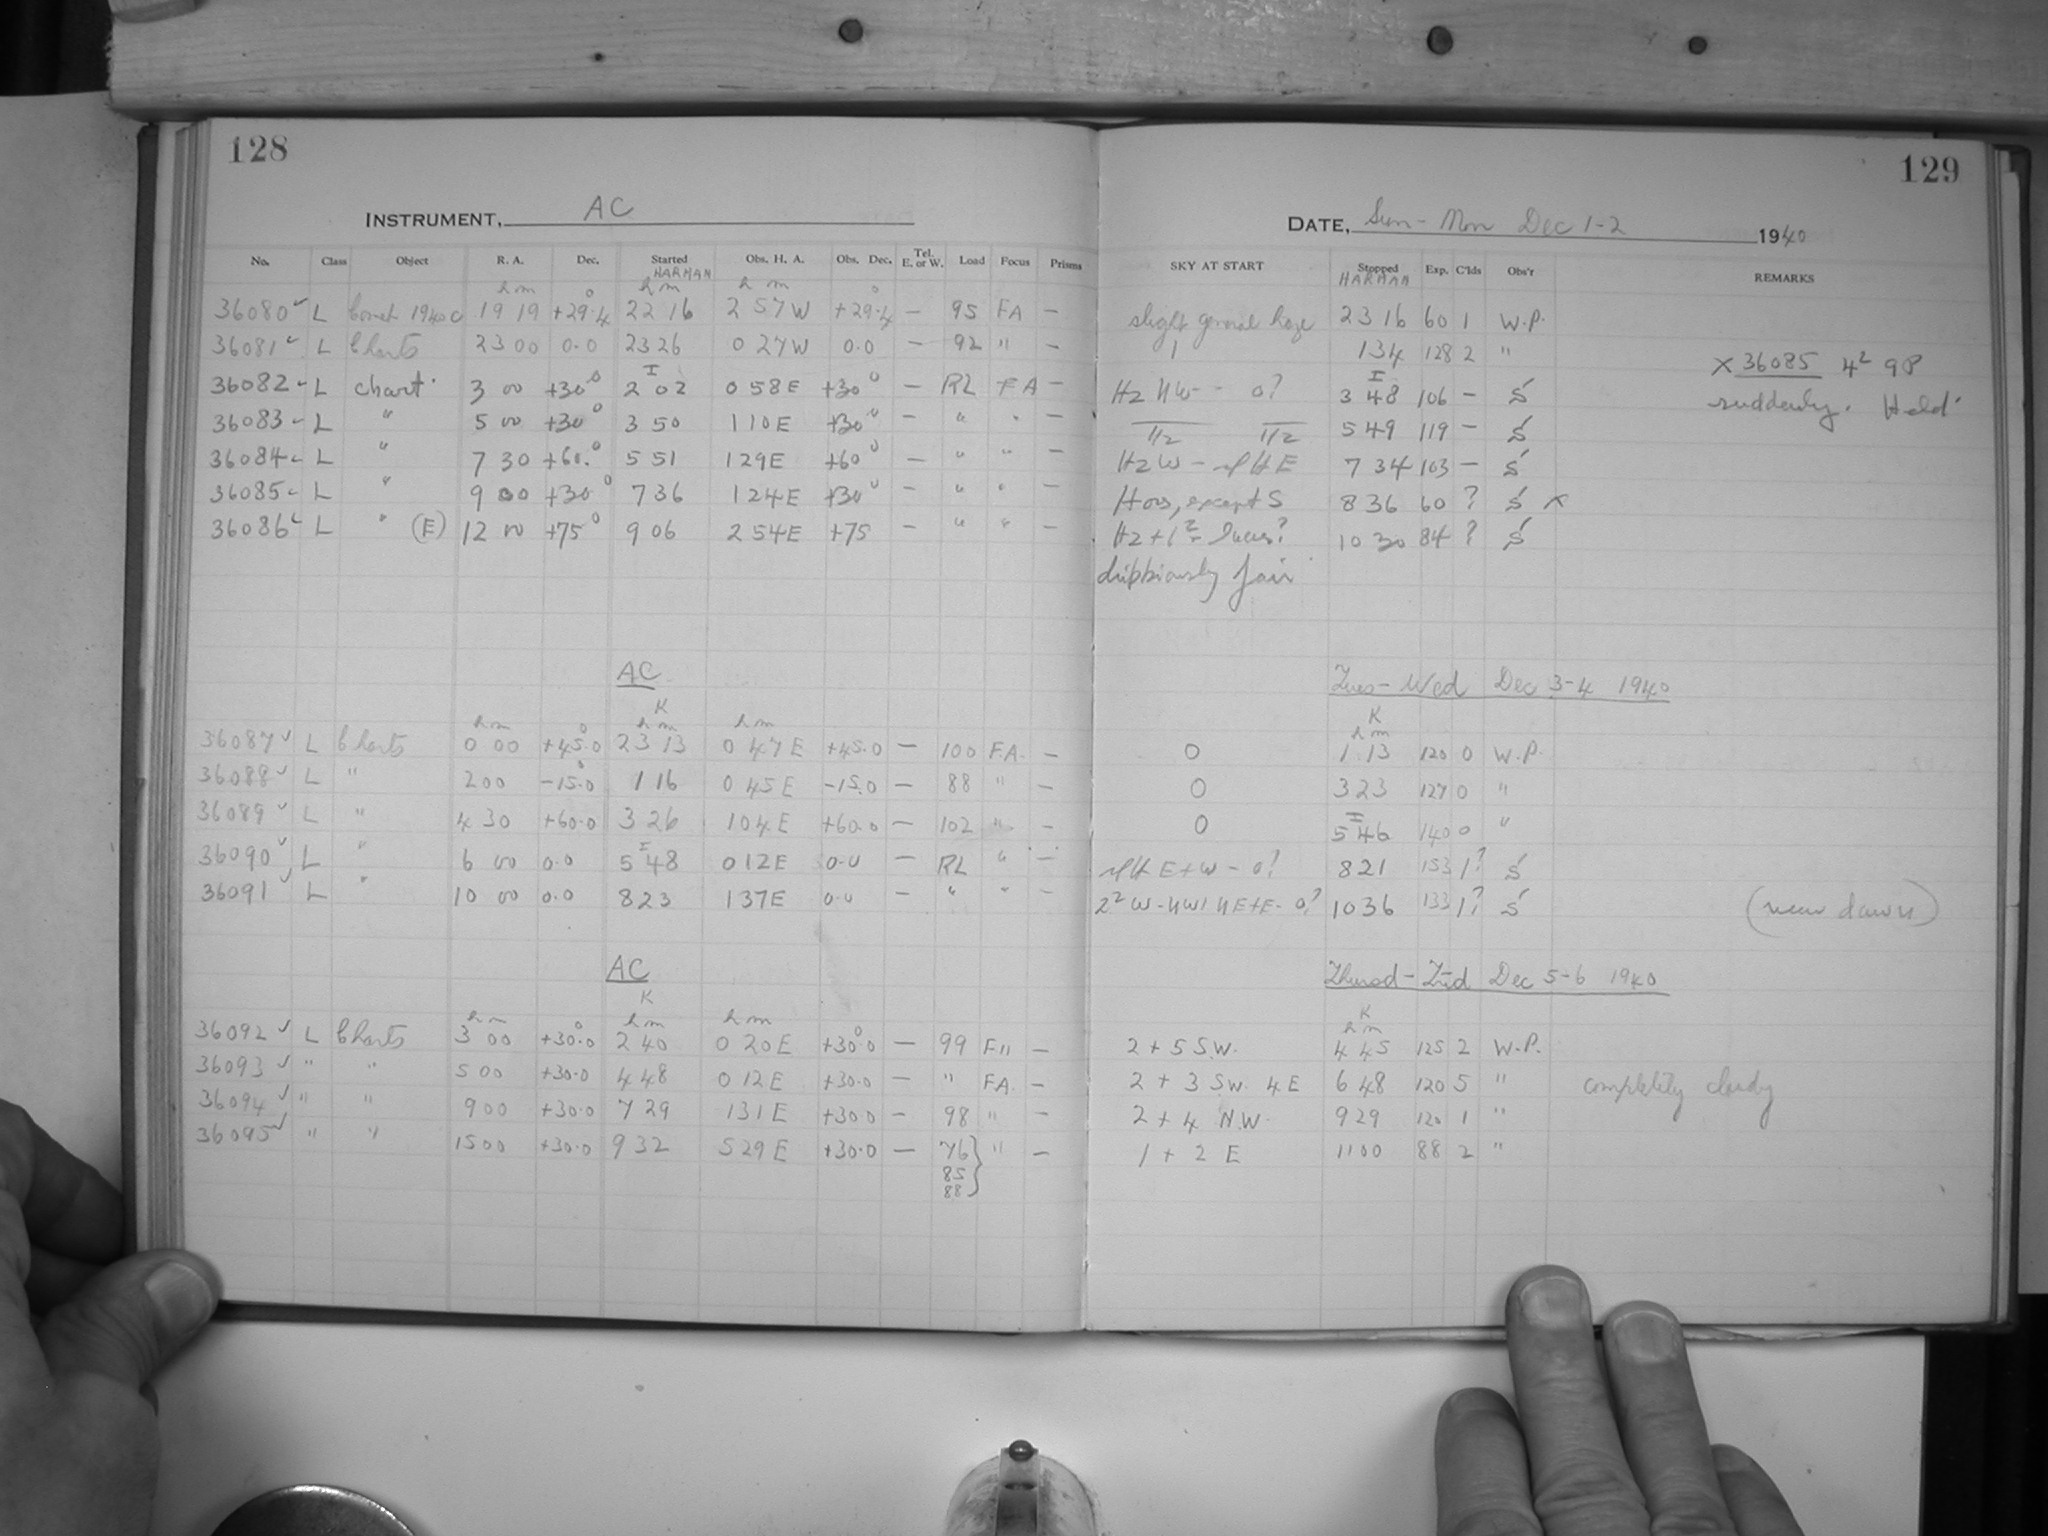 128
129
INSTRUMENT, AC
DATE, Sun-Mon Dec 1-2 1940
No. Class Object R. A. Dec. Started Obs. H. A. Obs. Dec. Tel. E. or W. Load Focus Prisms SKY AT START Stopped Exp. C'lds Obs'r REMARKS
HARMAN HARMAN
h m o h m h m o
36080 L Comet 1940c 19 19 +29.4 22 16 2 57W +29.4 — 95 FA — slight general haze 23 16 60 1 W.P.
36081 L Charts 23 00 0.0 23 26 0 27W 0.0 — 92 " — 1 1 34 128 2 "
36082 L chart 3 00 +30° 2 02 0 58E +30° — RL FA — Hz NW - 0? 3 48 106 — S
36083 L " 5 00 +30° 3 50 1 10E +30° — " " — Hz Hz 5 49 119 — S
36084 L " 7 30 +60° 5 51 1 29E +60° — " " — Hz W - E 7 34 103 — S
36085 L " 9 00 +30° 7 36 1 24E +30° — " " — except S 8 36 60 ? S x
36086 L " (E) 12 00 +75° 9 06 2 54E +75 — " " — Hz + 10 30 84 ? S
fair
X 36085 4² 9P
suddenly. Held
AC
Tues-Wed Dec 3-4 1940
K K
h m o h m h m h m
36087 L Charts 0 00 +45.0 23 13 0 47E +45.0 — 100 FA. — 0 1 13 120 0 W.P.
36088 L " 2 00 -15.0 1 16 0 45E -15.0 — 88 " — 0 3 23 127 0 "
36089 L " 4 30 +60.0 3 26 1 04E +60.0 — 102 " — 0 5 46 140 0 "
36090 L " 6 00 0.0 5 48 0 12E 0.0 — RL " — E+W - 0? 8 21 153 1? S
36091 L " 10 00 0.0 8 23 1 37E 0.0 — " " — 2² W-NW1 NE+E- 0? 10 36 133 1? S (near dawn)
AC
Thursd-Frid Dec 5-6 1940
K K
h m o h m h m o h m
36092 L Charts 3 00 +30.0 2 40 0 20E +30.0 — 99 F" — 2 + 5 S.W. 4 45 125 2 W.P.
36093 " " 5 00 +30.0 4 48 0 12E +30.0 — " FA. — 2 + 3 SW. 4E 6 48 120 5 " completely cloudy
36094 " " 9 00 +30.0 7 29 1 31E +30.0 — 98 " — 2 + 4 N.W. 9 29 120 1 "
36095 " " 15 00 +30.0 9 32 5 29E +30.0 — 76 " — 1 + 2 E 11 00 88 2 "
85
88